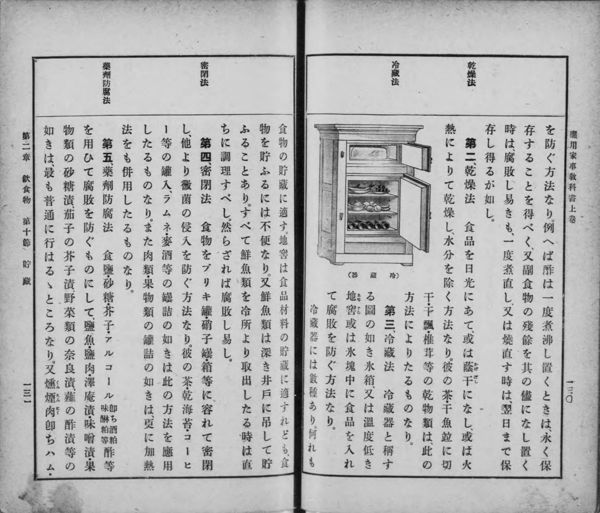 應用家事敎科書上卷
一三〇
を防ぐ方法なり。例へば酢は一度煮沸し置くときは、永く保
存することを得べく、又副食物の殘餘を其の儘になし置く
時は、腐敗し易きも、一度煮直し、又は燒直す時は、翌日まで保
存し得るが如し。
乾燥法
第二、乾燥法 食品を日光にあて、或は蔭干になし、或は火
熱によりて乾燥し、水分を除く方法なり。彼の茶、干魚、並に切
干、干瓢、椎茸等の乾物類は、此の
方法によりたるものなり。
冷藏法
第三、冷藏法 冷藏器と稱す
る圖の如き氷箱又は溫度低き
地窖或は氷塊中に食品を入れ
て腐敗を防ぐ方法なり。
冷藏器には數種あり、何れも
(冷藏器)
食物の貯藏に適す。地窖は食品材料の貯藏に適すれども、食
物を貯ふるには不便なり。又鮮魚類は深き井戸に吊して貯
ふることあり。すべて鮮魚類を冷所より取出したる時は直
ちに調理すべし、然らざれば腐敗し易し。
密閉法
第四、密閉法 食物をブリキ罐、硝子罎、箱等に容れて密閉
し、他より黴菌の侵入を防ぐ方法なり。彼の茶、乾海苔、コーヒ
ー等の罐入、ラムネ、麥酒等の罎詰の如きは此の方法を應用
したるものなり。また肉類、果物類の罐詰の如きは、更に加熱
法をも併用したるものなり。
藥劑防腐法
第五、藥劑防腐法 食鹽、砂糖、芥子、アルコール 卽ち酒粕味醂粕等 酢等
を用ひて腐敗を防ぐものにして、鹽魚、鹽肉、澤庵漬、味噌漬、果
物類の砂糖漬、茄子の芥子漬、野菜類の奈良漬、薤の酢漬等の
如きは、最も普通に行はるゝところなり。又燻煙肉卽ちハム、
第二章 飮食物 第十節 貯藏
一三一